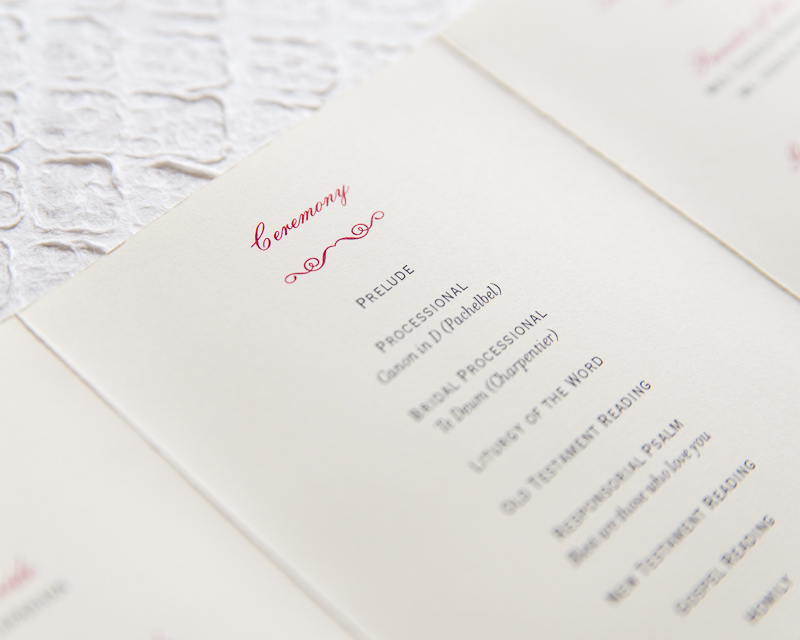 Ceremony
PRELUDE
PROCESSIONAL
Canon in D (Pachelbel)
BRIDAL PROCESSIONAL
Te Deum (Charpentier)
LITURGY OF THE WORD
OLD TESTAMENT READING
RESPONSORIAL PSALM
Blest are those who love you
NEW TESTAMENT READING
GOSPEL READING
HOMILY